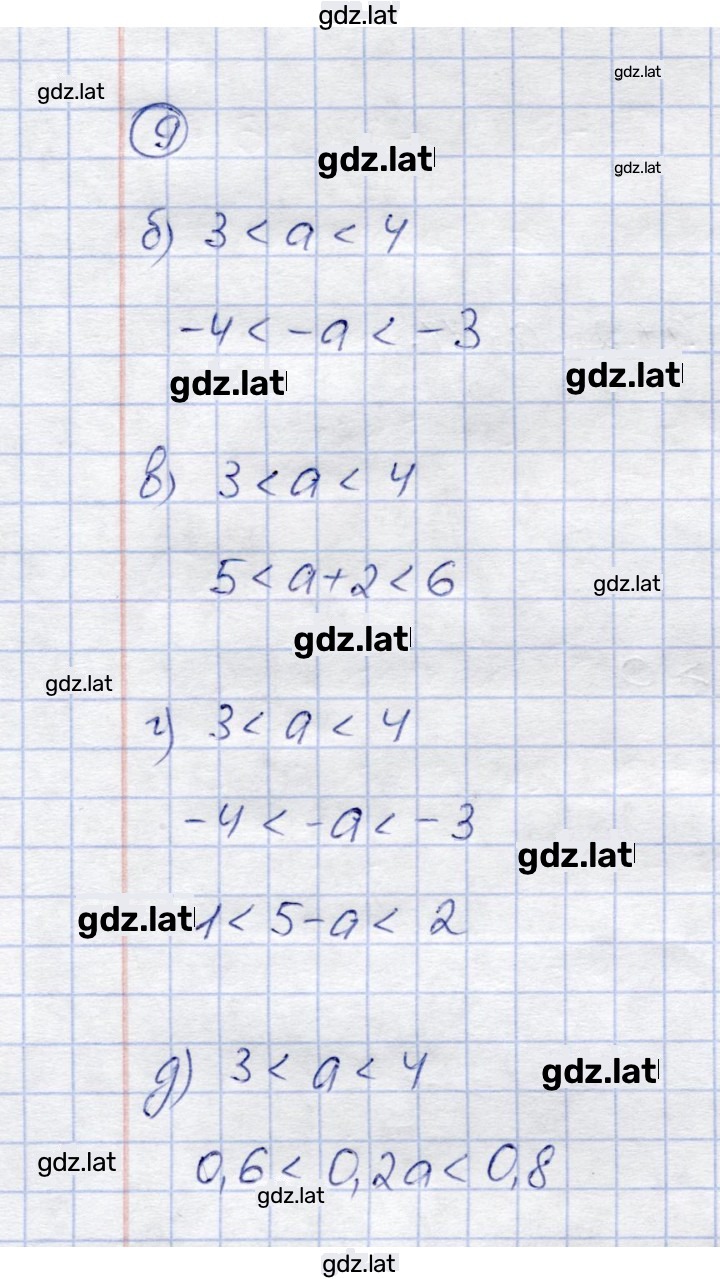 gdz.lat
gdz.lat
gdz.lat
9
gdz.lat
gdz.lat
б) 3 < a < 4
-4 < -a < -3
gdz.lat
gdz.lat
в) 3 < a < 4
5 < a+2 < 6
gdz.lat
gdz.lat
gdz.lat
г) 3 < a < 4
-4 < -a < -3
gdz.lat
gdz.lat 1 < 5-a < 2
д) 3 < a < 4
gdz.lat
gdz.lat
0,6 < 0,2a < 0,8
gdz.lat
gdz.lat